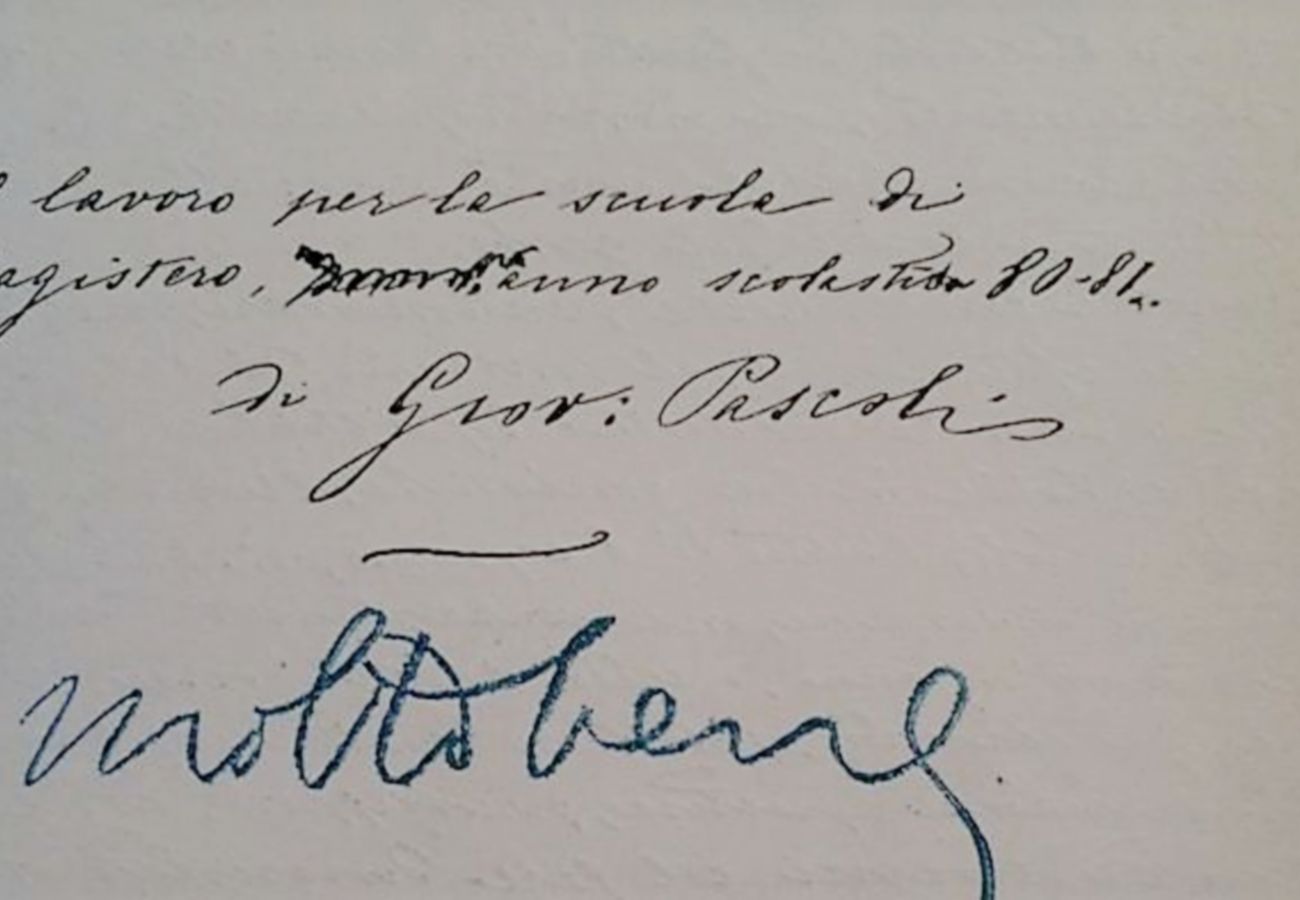 lavoro per la scuola di
agistero, anno scolastico 80-81.
di Giov: Pascoli
molto bene